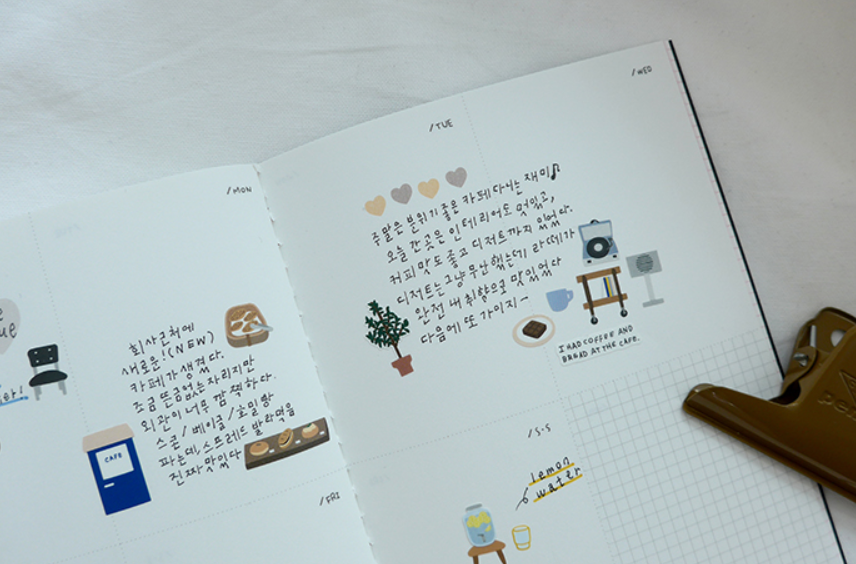 /MON
회사근처에
새로운!(NEW)
카페가 생겼다.
조금 뜬금없는 자리지만
외관이 너무 깜찍하다.
스콘/베이글/호밀빵
파는데, 스프레드 발라먹음
진짜 맛있다
CAFE
/FRI
/TUE
주말은 분위기 좋은 카페 다니는 재미♪
오늘 간곳은 인테리어도 멋있고,
커피맛도 좋고 디저트까지 있었다.
디저트는 그냥 무난했는데 라떼가
완전 내 취향으로 맛있었다
다음에 또 가야지~
I HAD COFFEE AND
BREAD AT THE CAFE.
/WED
/S·S
lemon
water